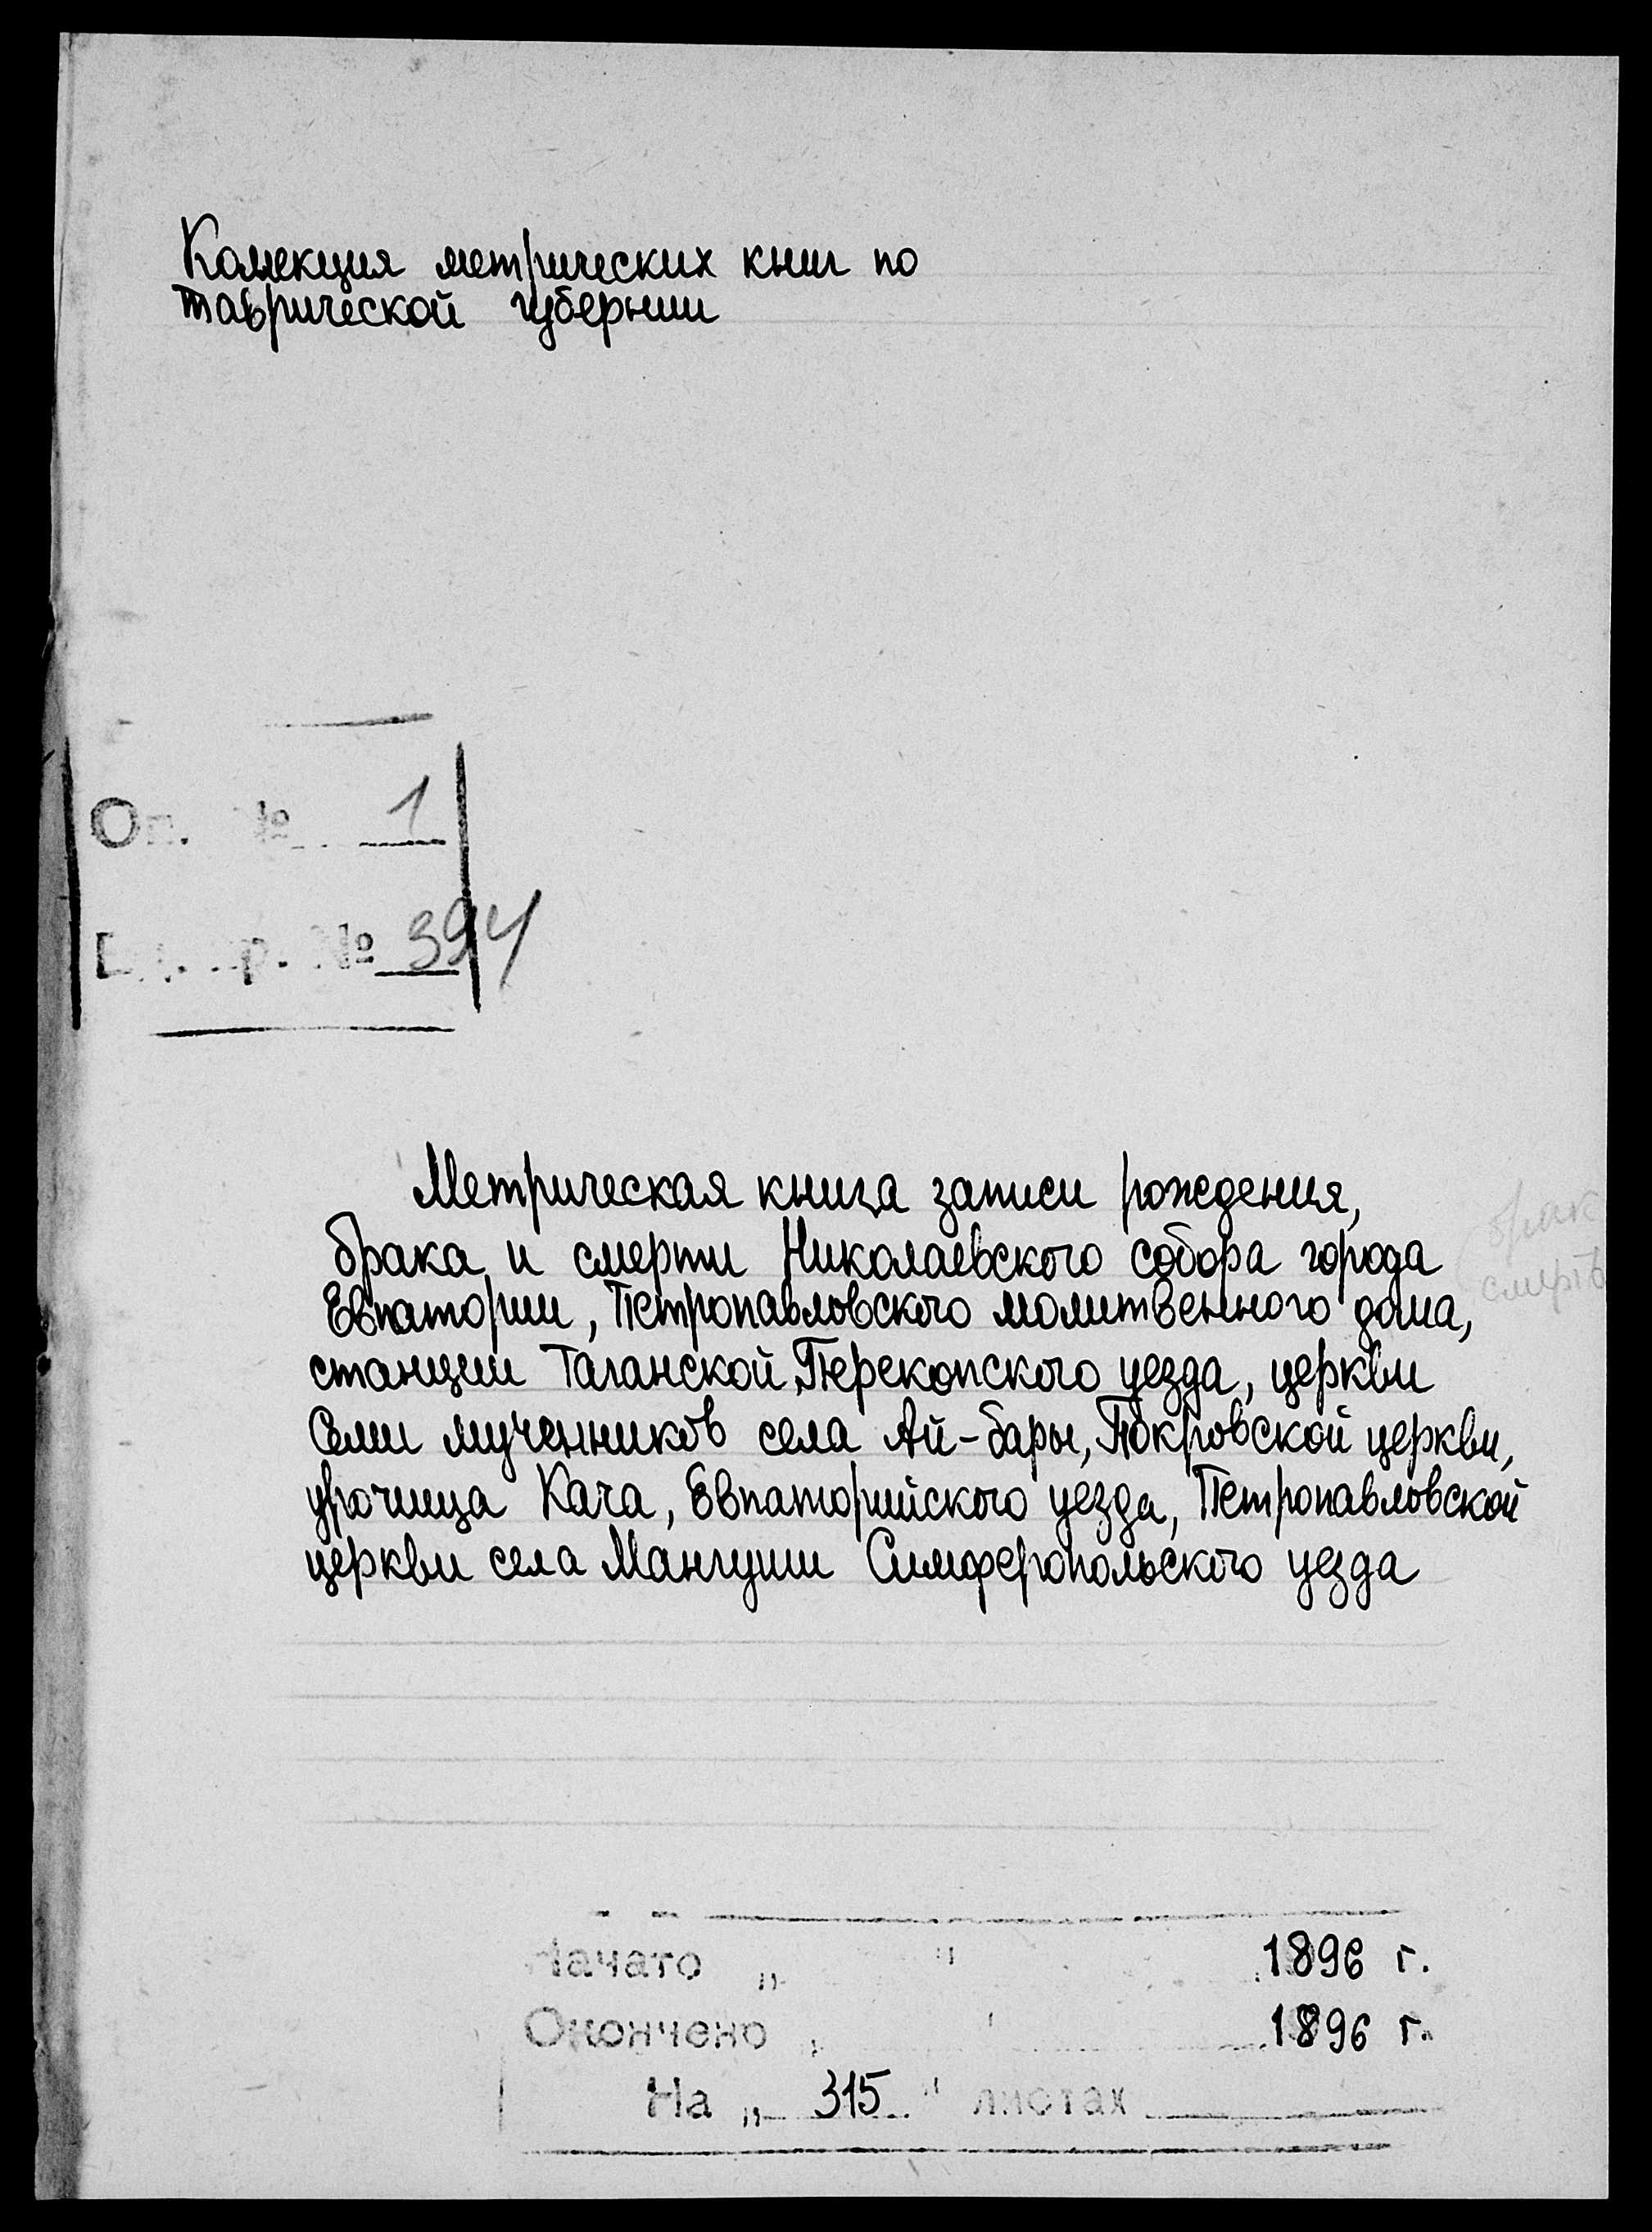 Коллекция метрических книг по
таврической губернии
Оп. № 1
Ед. хр. № 394
Метрическая книга записи рождения,
брака и смерти Николаевского собора города
брак
Евпатории, Петропавловского молитвенного дома,
смерть
станции Таганской, Перекопского уезда, церкви
Семи мученников села Ай-бары, Покровской церкви,
урочища Кача, Евпаторийского уезда, Петропавловской
церкви села Мангуши Симферопольского уезда
Начато „ " 1896 г.
Окончено „ " 1896 г.
На „ 315 " листах